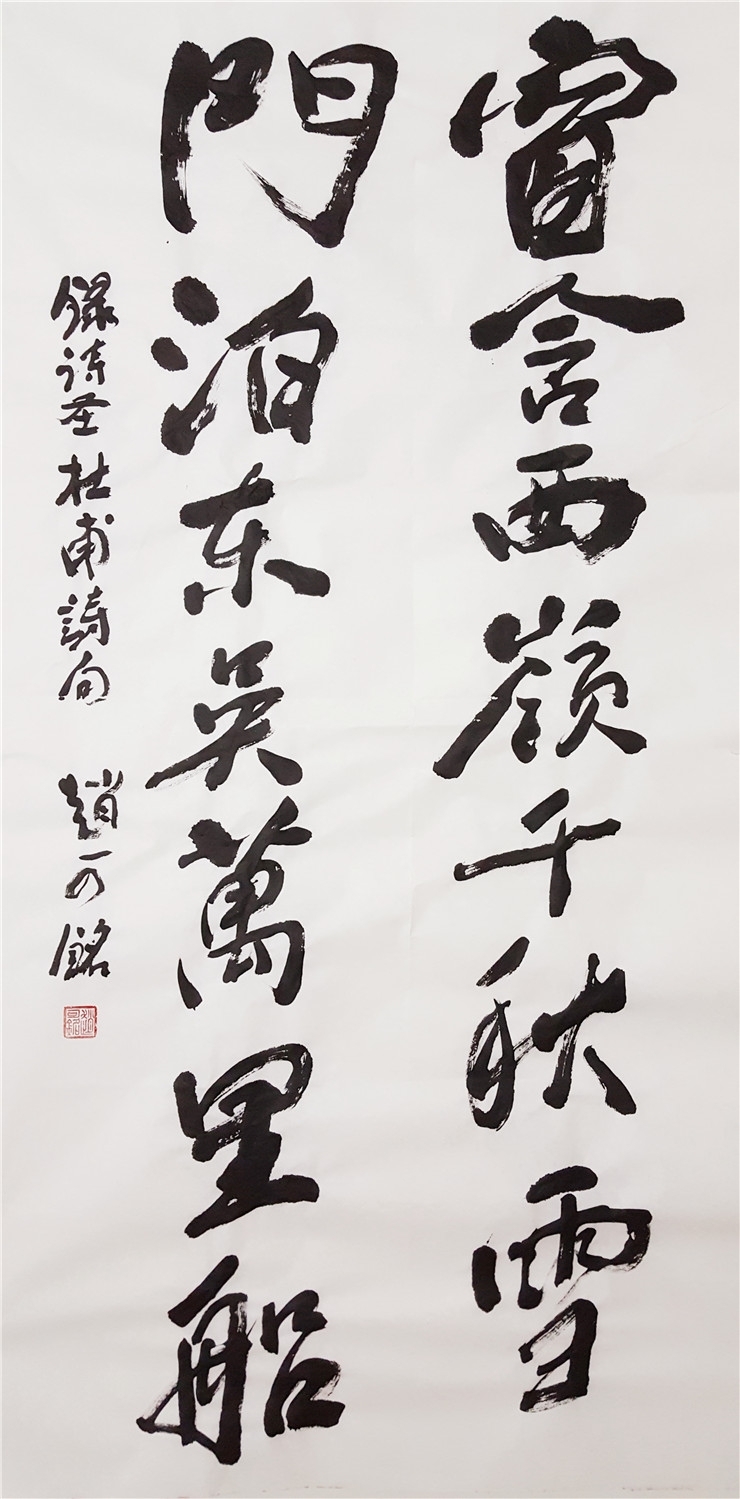 窗含西嶺千秋雪
門泊东吴萬里船
録诗圣杜甫詩句 趙可銘